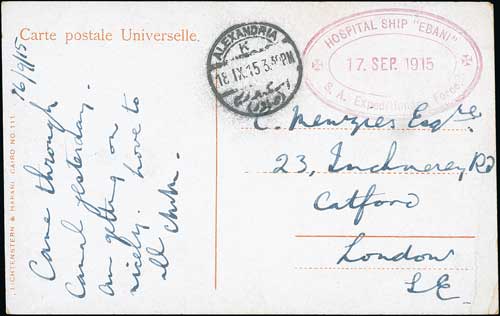 Carte postale Universelle.
16/9/15
Came through
Canal yesterday.
am getting on
nicely. Love to
all
LICHTENSTERN & HARARI, CAIRO NO. 111.
ALEXANDRIA
K
18 IX 15 3.30PM
HOSPITAL SHIP "EBANI"
17. SEP. 1915
S. A. Expeditionary Force
C. Menzies Esqre.
23, Inchmery Rd
Catford
London
S.E.